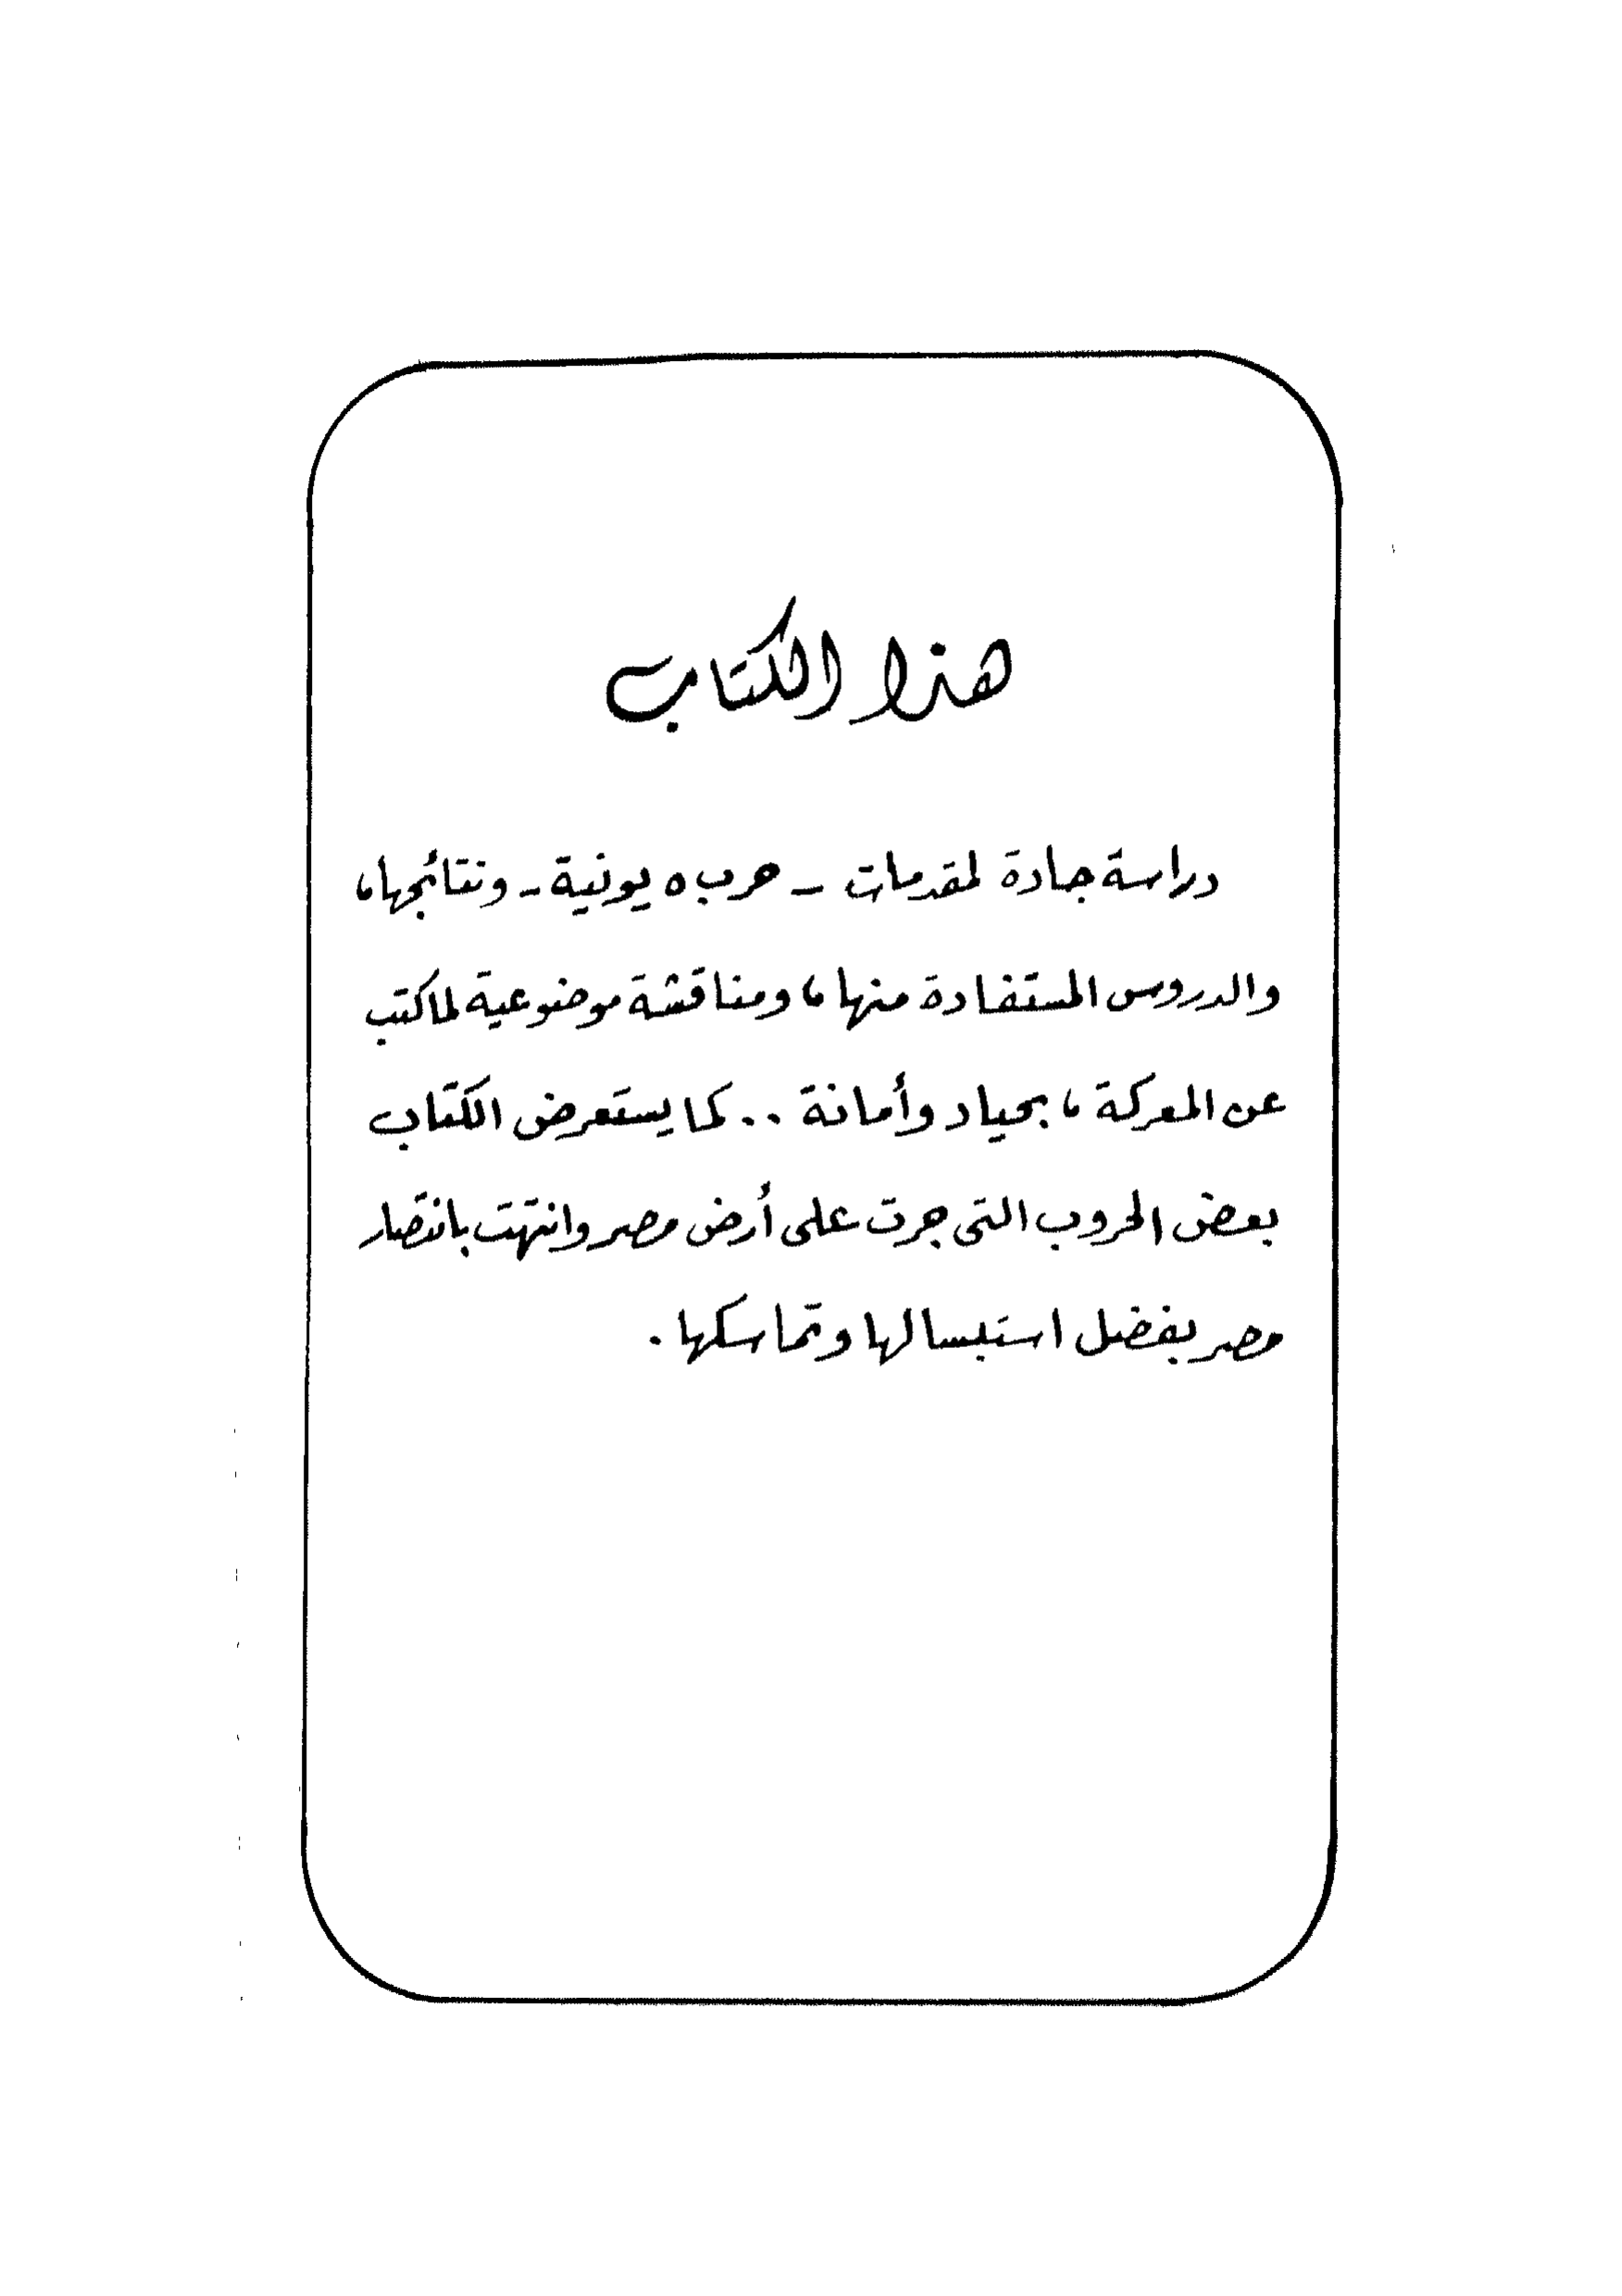 هذا الكتاب
دراسة جادة لمقدمات - حرب ٥ يونية - ونتائجها،
والدروس المستفادة منها، ومناقشة موضوعية لما كتب
عن المعركة، بحياد وأمانة .. كما يستعرض الكتاب
بعض الحروب التى جرت على أرض مصر وانتهت بانتصار
مصر بفضل استبسالها وتماسكها .